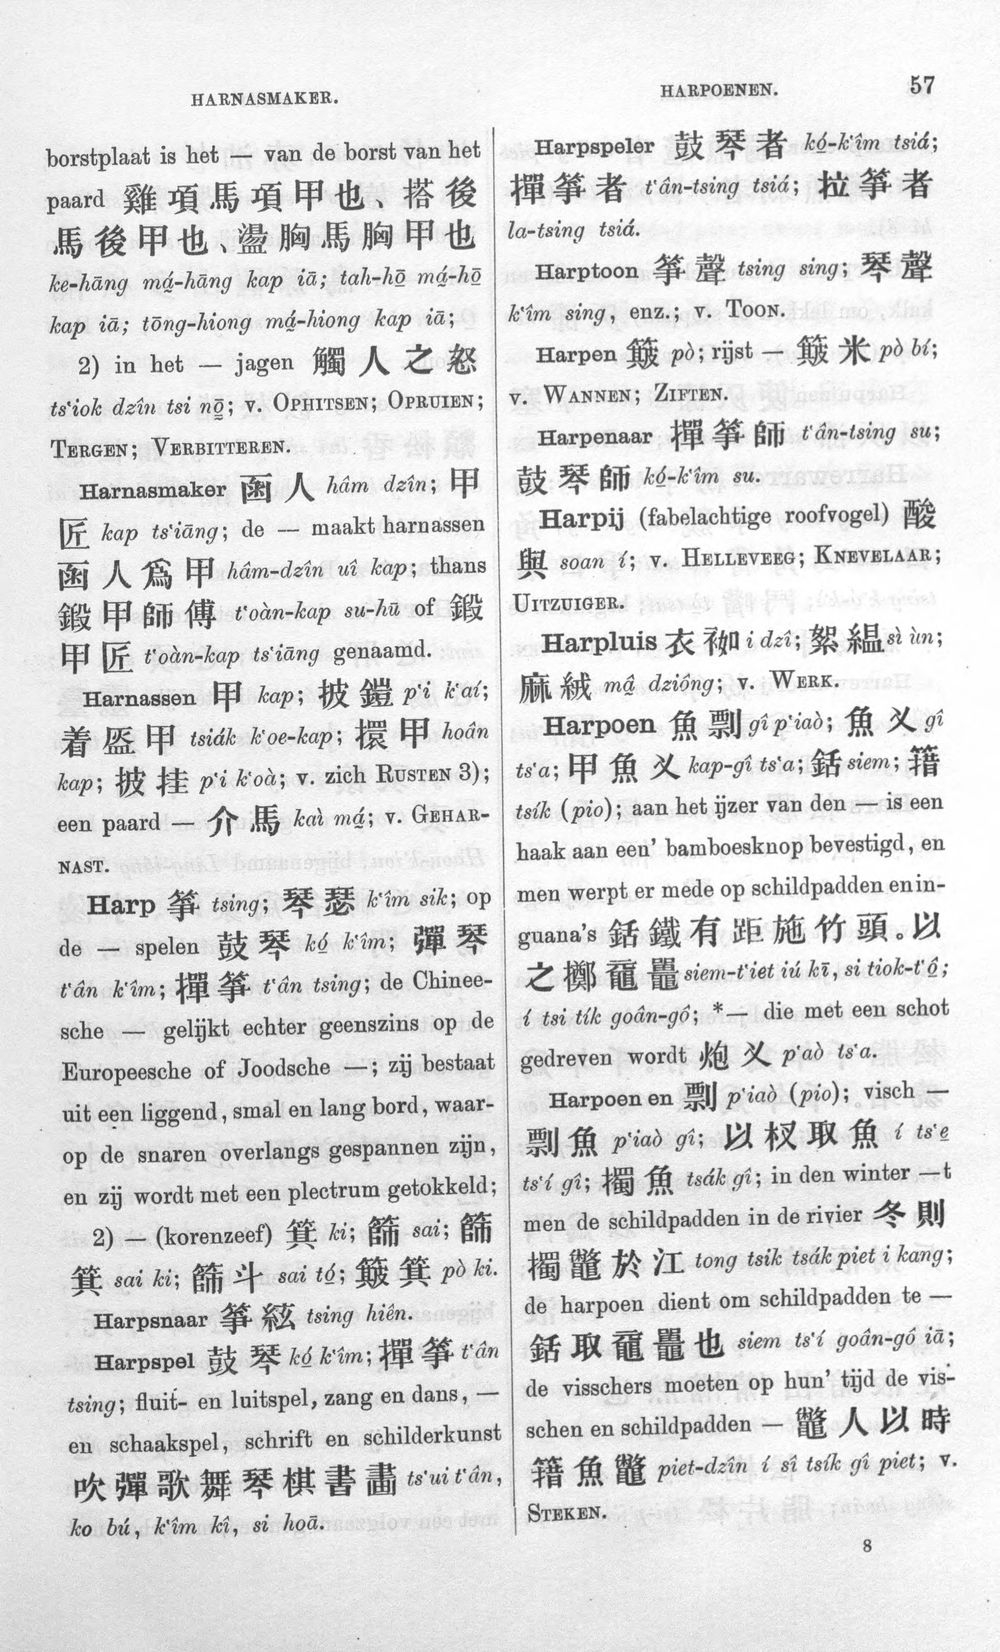 HARNASMAKER.
HARPOENEN.
57
borstplaat is het — van de borst van het
paard 雞項馬項甲也、搭後
馬後甲也、盪胸馬胸甲也
ke-hāng má̤-hāng kap iā; tah-hō̤ má̤-hō̤
kap iā; tōng-hiong má̤-hiong kap iā;
2) in het — jagen 觸人之怒
ts‘iok dzîn tsi nō̤; v. OPHITSEN; OPRUIEN;
TERGEN; VERBITTEREN.
Harnasmaker 函人 hâm dzîn; 甲
匠 kap ts‘iāng; de — maakt harnassen
函人爲甲 hâm-dzîn uî kap; thans
鍛甲師傅 t‘oàn-kap su-hū of 鍛
甲匠 t‘oàn-kap ts‘iāng genaamd.
Harnassen 甲 kap; 披鎧 p‘i k‘aí;
着盔甲 tsiák k‘oe-kap; 擐甲 hoân
kap; 披挂 p‘i k‘oà; v. zich RUSTEN 3);
een paard — 介馬 kaì má̤; v. GEHAR-
NAST.
Harp 箏 tsing; 琴瑟 k‘îm sik; op
de — spelen 鼓琴 kó̤ k‘îm; 彈琴
t‘ân k‘îm; 撣箏 t‘ân tsing; de Chinee-
sche — gelijkt echter geenszins op de
Europeesche of Joodsche —; zij bestaat
uit een liggend, smal en lang bord, waar-
op de snaren overlangs gespannen zijn,
en zij wordt met een plectrum getokkeld;
2) — (korenzeef) 箕 ki; 篩 sai; 篩
箕 sai ki; 篩斗 sai tó̤; 簸箕 pò ki.
Harpsnaar 箏絃 tsing hiên.
Harpspel 鼓琴 kó̤ k‘îm; 撣箏 t‘ân
tsing; fluit- en luitspel, zang en dans, —
en schaakspel, schrift en schilderkunst
吹彈歌舞琴棋書畵 ts‘ui t‘ân,
ko bú, k‘îm kî, si hoā.
Harpspeler 鼓琴者 kó̤-k‘îm tsiá;
撣箏者 t‘ân-tsing tsiá; 拉箏者
la-tsing tsiá.
Harptoon 箏聲 tsing sing; 琴聲
k‘îm sing, enz.; v. TOON.
Harpen 簸 pò; rijst — 簸米 pò bí;
v. WANNEN; ZIFTEN.
Harpenaar 撣箏師 t‘ân-tsing su;
鼓琴師 kó̤-k‘îm su.
Harpij (fabelachtige roofvogel) 酸
與 soan í; v. HELLEVEEG; KNEVELAAR;
UITZUIGER.
Harpluis 衣袽 i dzî; 絮緼 sì ùn;
麻絨 mâ̤ dzióng; v. WERK.
Harpoen 魚剽 gî p‘iaò; 魚㕚 gî
ts‘a; 甲魚㕚 kap-gî ts‘a; 銛 siem; 籍
tsík (pio); aan het ijzer van den — is een
haak aan een’ bamboesknop bevestigd, en
men werpt er mede op schildpadden en in-
guana’s 銛鐵有距施竹頭。以
之擲黿鼉 siem-t‘iet iú kī, si tiok-t‘ô̤;
í tsi tík goân-gô; *— die met een schot
gedreven wordt 炮㕚 p‘aò ts‘a.
Harpoenen 剽 p‘iaò (pio); visch —
剽魚 p‘iaò gî; 以杈取魚 í ts‘e̤
ts‘í gî; 擉魚 tsák gî; in den winter —t
men de schildpadden in de rivier 冬則
擉鼈於江 tong tsik tsák piet i kang;
de harpoen dient om schildpadden te —
銛取黿鼉也 siem ts‘í goân-gô iā;
de visschers moeten op hun’ tijd de vis-
schen en schildpadden — 鼈人以時
籍魚鼈 piet-dzîn í sî tsík gî piet; v.
STEKEN.
8